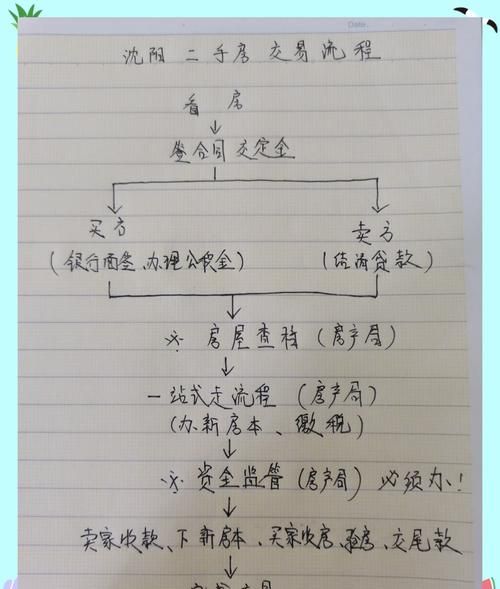 Date.
沈阳 二手房 交易流程
看 房
签合同 交定金
买方 卖方
(银行面签、办理公积金) (结清贷款)
※ 房屋查档 (房产局)
一站式走流程 (房产局)
(办新房本、缴税)
※ 资金监管 (房产局) 必须办!
卖家收款、下新房本、买家收房、验房、交尾款